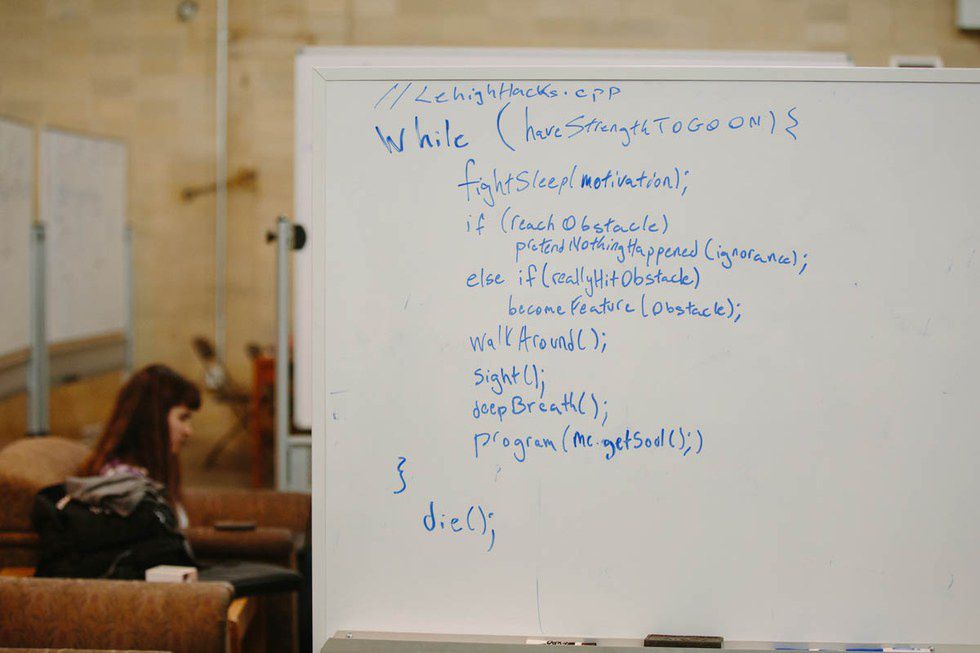 //LehighHacks.cpp
While (haveStrengthTOGOON) {
fightSleep(motivation);
if (reachObstacle)
pretendNothingHappened(ignorance);
else if(reallyHitObstacle)
becomeFeature(Obstacle);
walkAround();
sight();
deepBreath();
program(me.getSoul();)
}
die();